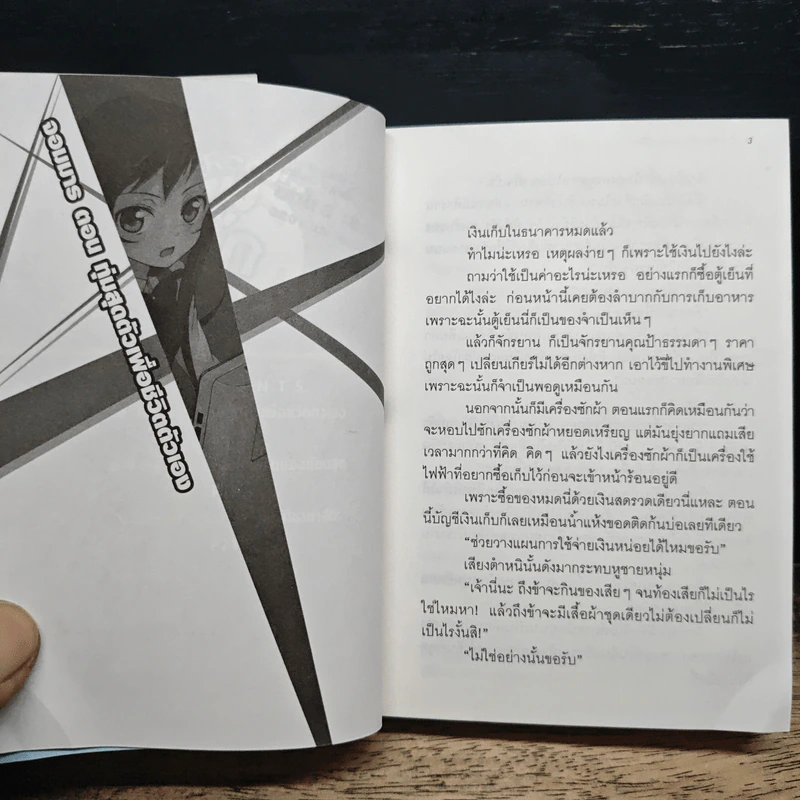 ขอเอาตัวรอดเพื่อชีวิตสุดทุ่ม ตอน จอมมาร
3
เงินเก็บในธนาคารหมดแล้ว
ทำไมน่ะเหรอ เหตุผลง่ายๆ ก็เพราะใช้เงินไปยังไงล่ะ
ถามว่าใช้เป็นค่าอะไรน่ะเหรอ อย่างแรกก็ซื้อตู้เย็นที่
อยากได้ไงล่ะ ก่อนหน้านี้เคยต้องลำบากกับการเก็บอาหาร
เพราะฉะนั้นตู้เย็นนี่ก็เป็นของจำเป็นเห็นๆ
แล้วก็จักรยาน ก็เป็นจักรยานคุณป้าธรรมดาๆ ราคา
ถูกสุดๆ เปลี่ยนเกียร์ไม่ได้อีกต่างหาก เอาไว้ขี่ไปทำงานพิเศษ
เพราะฉะนั้นก็จำเป็นพอดูเหมือนกัน
นอกจากนั้นก็มีเครื่องซักผ้า ตอนแรกก็คิดเหมือนกันว่า
จะหอบไปซักเครื่องซักผ้าหยอดเหรียญ แต่มันยุ่งยากแถมเสีย
เวลามากกว่าที่คิด คิดๆ แล้วยังไงเครื่องซักผ้าก็เป็นเครื่องใช้
ไฟฟ้าที่อยากซื้อเก็บไว้ก่อนจะเข้าหน้าร้อนอยู่ดี
เพราะซื้อของหมดนี่ด้วยเงินสดรวดเดียวนี่แหละ ตอน
นี้บัญชีเงินเก็บก็เลยเหมือนน้ำแห้งขอดติดก้นบ่อเลยทีเดียว
“ช่วยวางแผนการใช้จ่ายเงินหน่อยได้ไหมขอรับ”
เสียงตำหนินั้นดังมากระทบหูชายหนุ่ม
“เจ้านี่นะ ถึงข้าจะกินของเสียๆ จนท้องเสียก็ไม่เป็นไร
ใช่ไหมหา! แล้วถึงข้าจะมีเสื้อผ้าชุดเดียวไม่ต้องเปลี่ยนก็ไม่
เป็นไรงั้นสิ!”
“ไม่ใช่อย่างนั้นขอรับ”